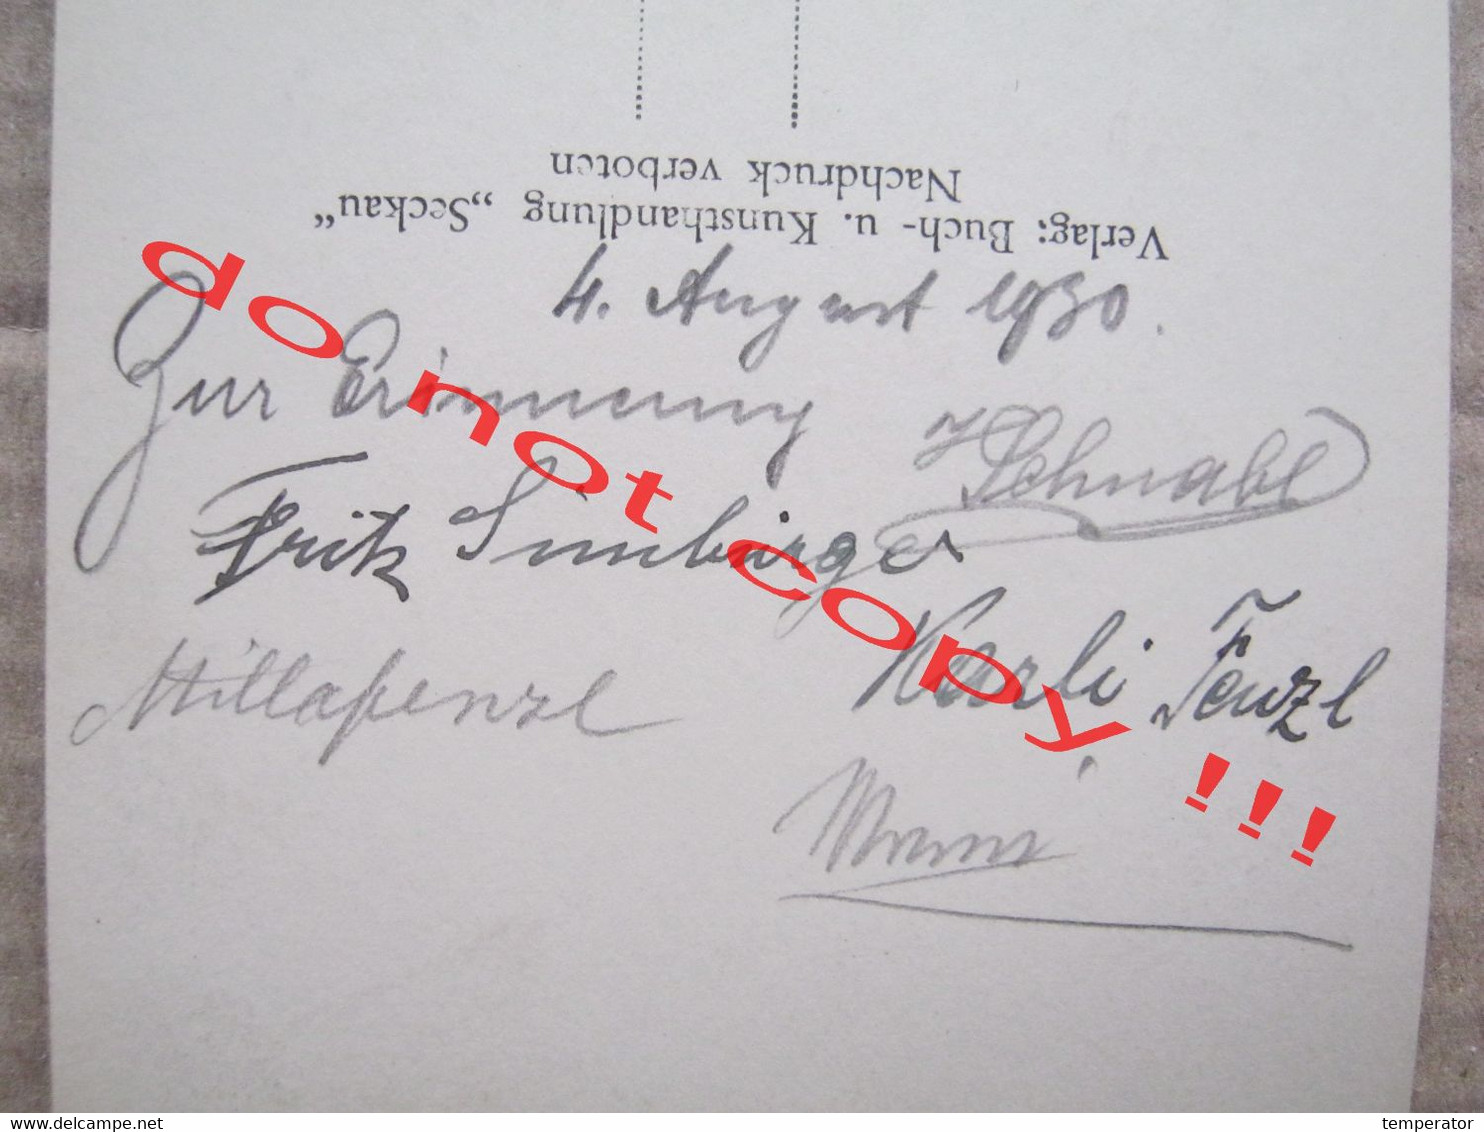 Nachdruck verboten
Verlag: Buch- u. Kunsthandlung „Seckau“
4. August 1930.
Zur Erinnerung
Schnabl
Fritz
Karli Fenzl
do not copy !!!
www.delcampe.net
temperator